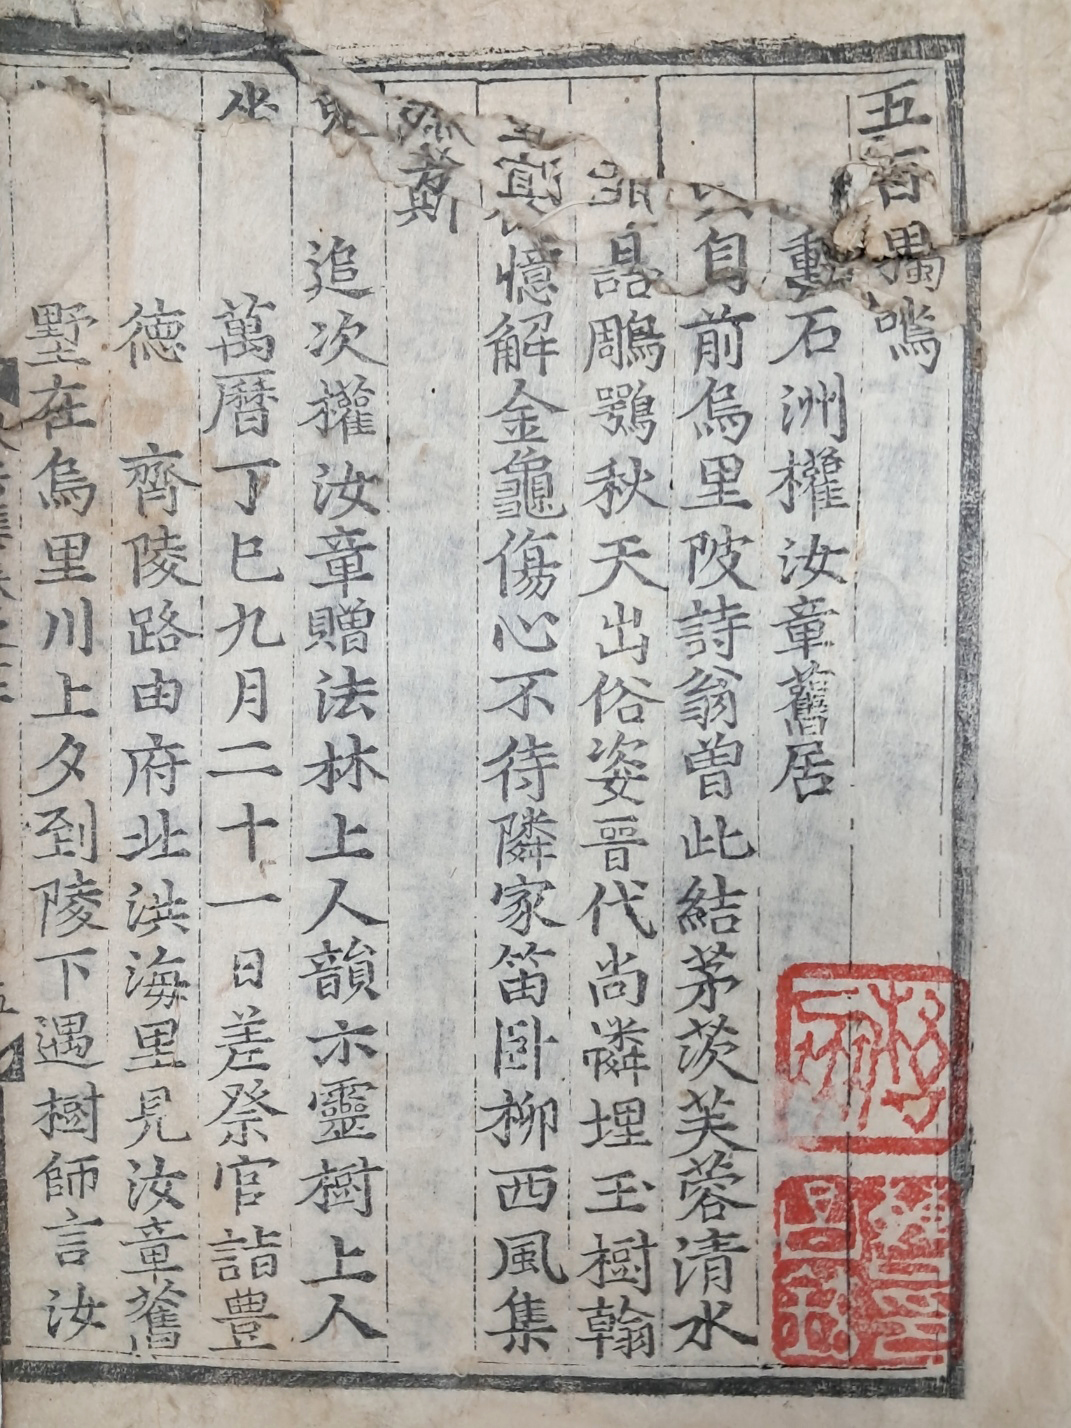 五百獨嗚
動石洲權汝章舊居
自前烏里陂詩翁曾此結茅茨芙蓉清水
語鵰鶚秋天出俗姿晉代尚憐埋玉樹翰
憶解金龜傷心不待隣家笛卧柳西風集

追次權汝章贈法林上人韻示靈樹上人
萬曆丁巳九月二十一日差祭官詣豊
德 齊陵路由府北洪海里見汝章舊
墅在烏里川上夕到陵下遇樹師言汝